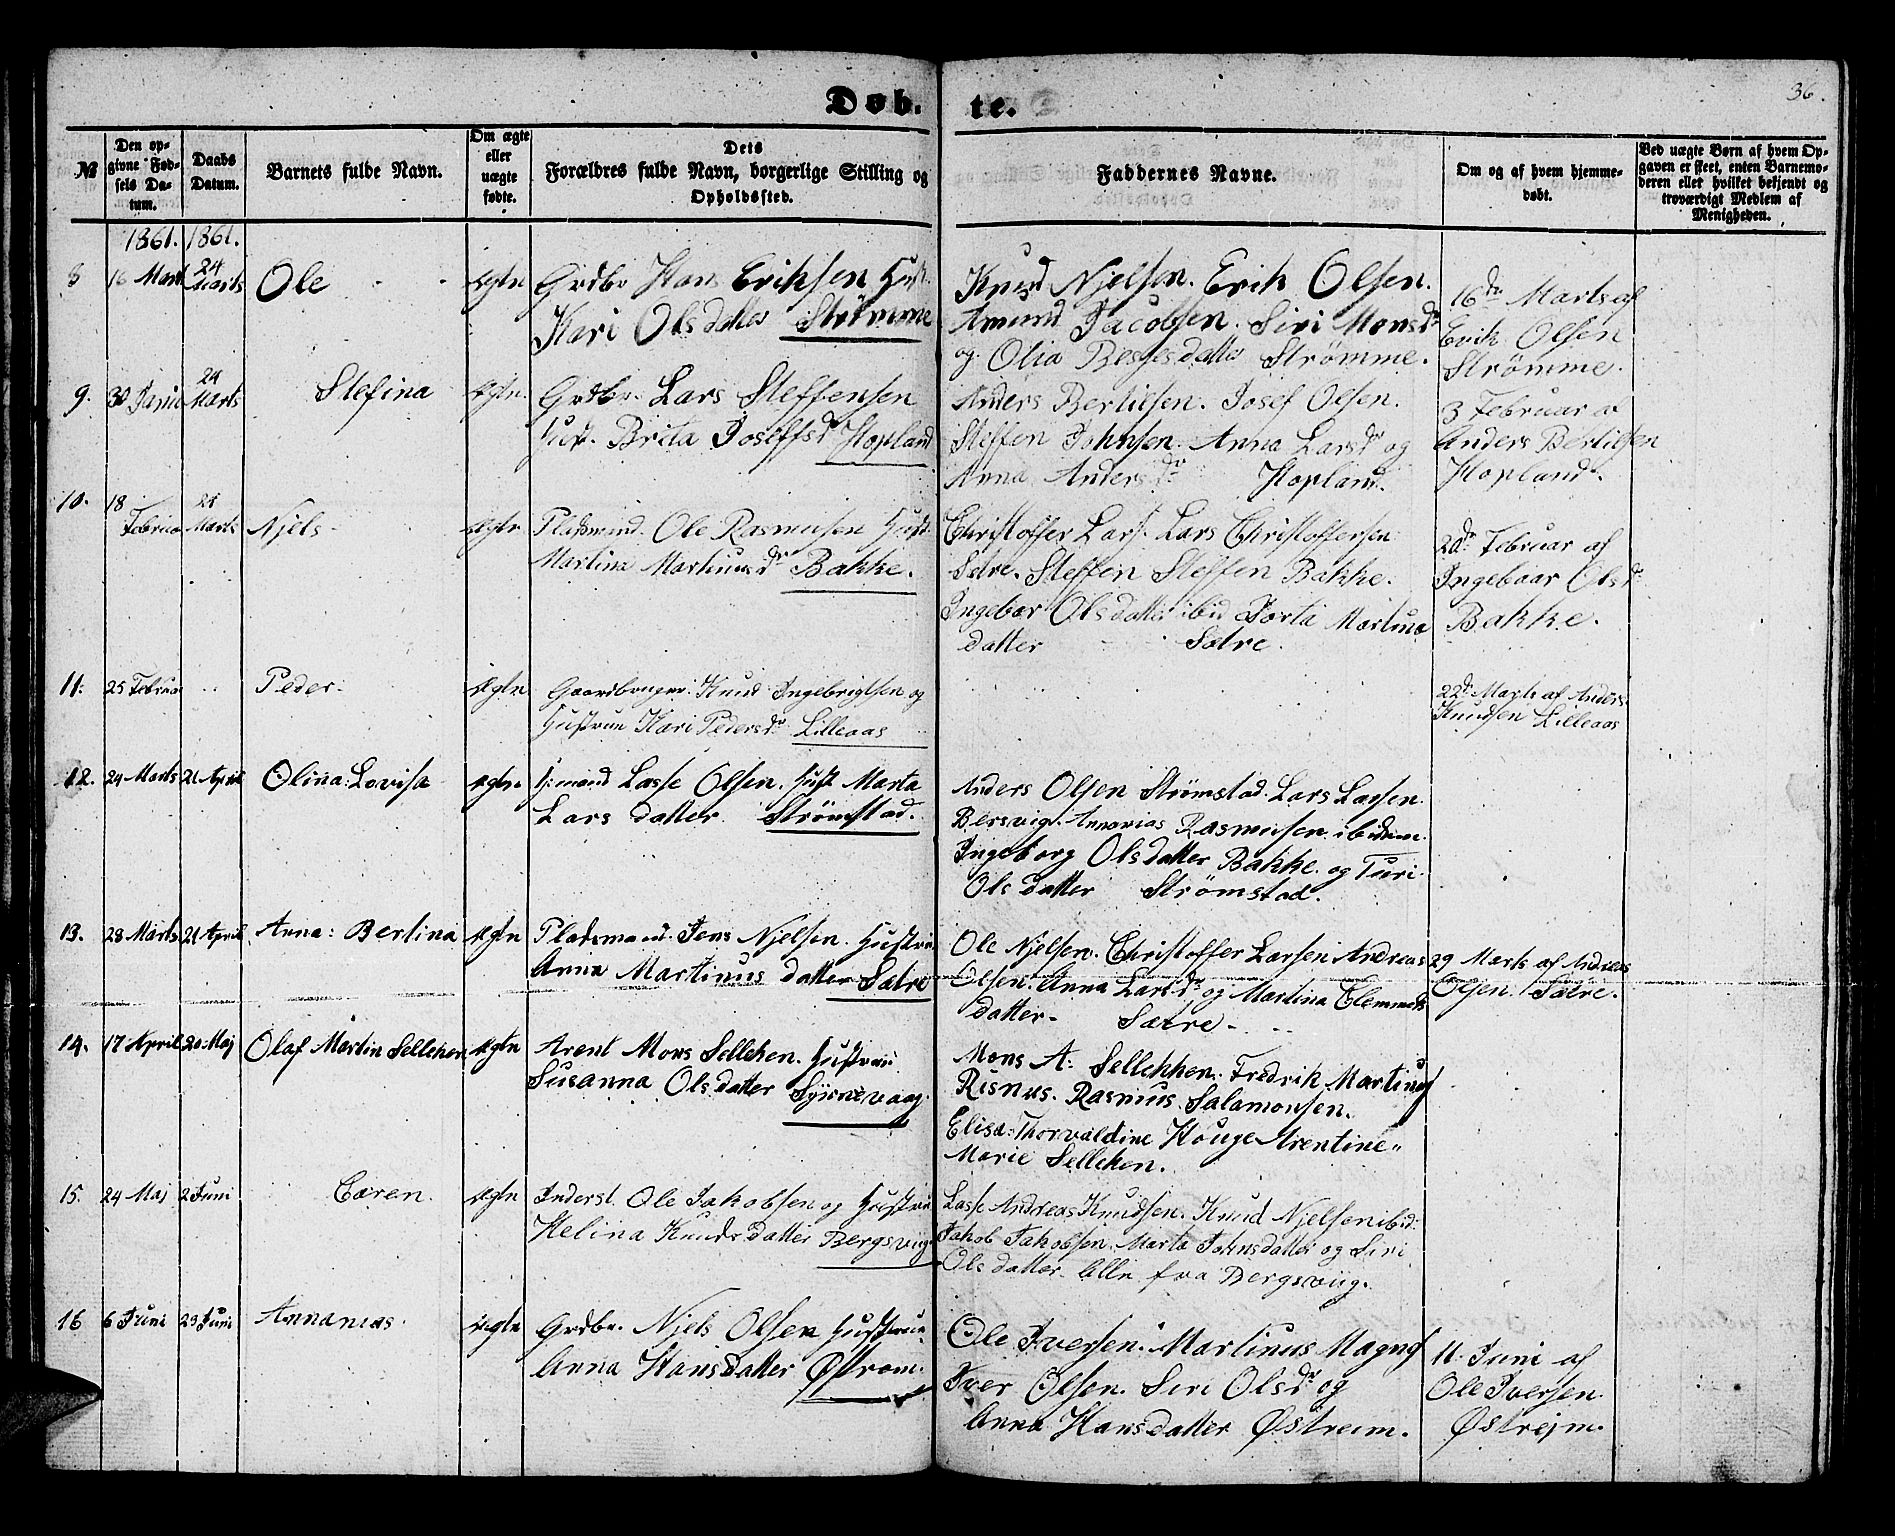 Døb.
te.
36.
№
Den op-
givne Fød-
sels Da-
tum.
Daabs
Datum.
Barnets fulde Navn.
Om ægte
eller
uægte
fødte.
Dets
Forældres fulde Navn, borgerlige Stilling og
Opholdssted.
Faddernes Navne.
Om og af hvem hjemme-
døbt.
Ved uægte Børn af hvem Op-
gaven er skeet, enten Barnemo-
deren eller hvilket bekjendt og
troværdigt Medlem af
Menigheden.
1861. 1861.
8 16 Marts 24 Marts Ole ægte Grdbr Hans Eriksen Hust.
Kari Olsdatter Strømme
Knud Njelsen. Erik Olsen.
Amund Jacobsen. Siri Monsdr
og Olia Besjesdatter Strømme.
16de Marts af
Erik Olsen
Strømme.
9. 30 24 Marts Stefina ægte Grdbr. Lars Steffensen
Hust. Brita Joseffsdr Hopland
Anders Bertilsen. Josef Olsen.
Steffen Johnsen. Anna Larsdr og
Anna Andersdr Hopland.
3 Februar af
Anders Bertilsen
Hopland.
10. 18 Februar Marts Njels ægte Pladsmand. Ole Rasmusen Hust.
Martine Martinusdr Bakke.
Christoffer Lars. Lars Christoffersen
Sætre. Steffen Steffen Bakke.
Ingebor Olsdatter ibid Marta Martinus
datter Sætre.
20de Februar af
Ingeboar Olsdr
Bakke.
11. 25 Februar Peder. ægte Gaardbruger. Knud Ingebrigtsen og
Hustrue Kari Pedersdr Lilleaas
22de Marts af Anders
Knudsen Lilleaas
12. 24 Marts 21 April Olina: Lovisa ægte H:mand Lasse Olsen. Hust Marta
Lars datter Strømstad.
Anders Olsen Strømstad. Lars Larsen
Bersvig. Annanias Rasmusen ibidem.
Ingeborg Olsdatter Bakke og Turi
Ols datter Strømstad.
13. 28 Marts 21 April Anna: Bertina ægte Pladsmand. Jens Njelsen. Hustru
Anna Martinus datter Sætre
Ole Njelsen. Christoffer Larsen Andreas
Olsen. Anna Larsdr og Martina Clemmets
datter Sætre
29 Marts af Andreas
Olsen Sætre.
14. 17 April 20 Maj Olaf MartinSelleken ægte Arent Mons Selleken. Hustrue
Susanna Olsdatter Syrnevaag.
Mons A: Sellekken. Fredrik Martinus
Risnes. Rasmus Salamonsen.
Elisa: Thorvaldine Houge Arentine
Marie Selleken.
15. 24 Maj 2 Juni Caren. ægte Inderst Ole Jakobsen og Hustru
Helina Knudsdatter Bergsviig
Lasse Andreas Knudsen. Knud Njelsen ibid:
Jakob Jakobsen. Marta Johnsdatter og Siri
Ols datter Alle fra Bergsviig.
16 6 Juni 23 Juni Annanias ægte Grdbr. Njels Olsen Hustrue
Anna Hansdatter Østrem.
Ole Iversen. Martinus Magnus
Iver Olsen. Siri Olsdr og
Anna Hansdatter Østreim.
11. Juni af
Ole Iversen
Østrejm.